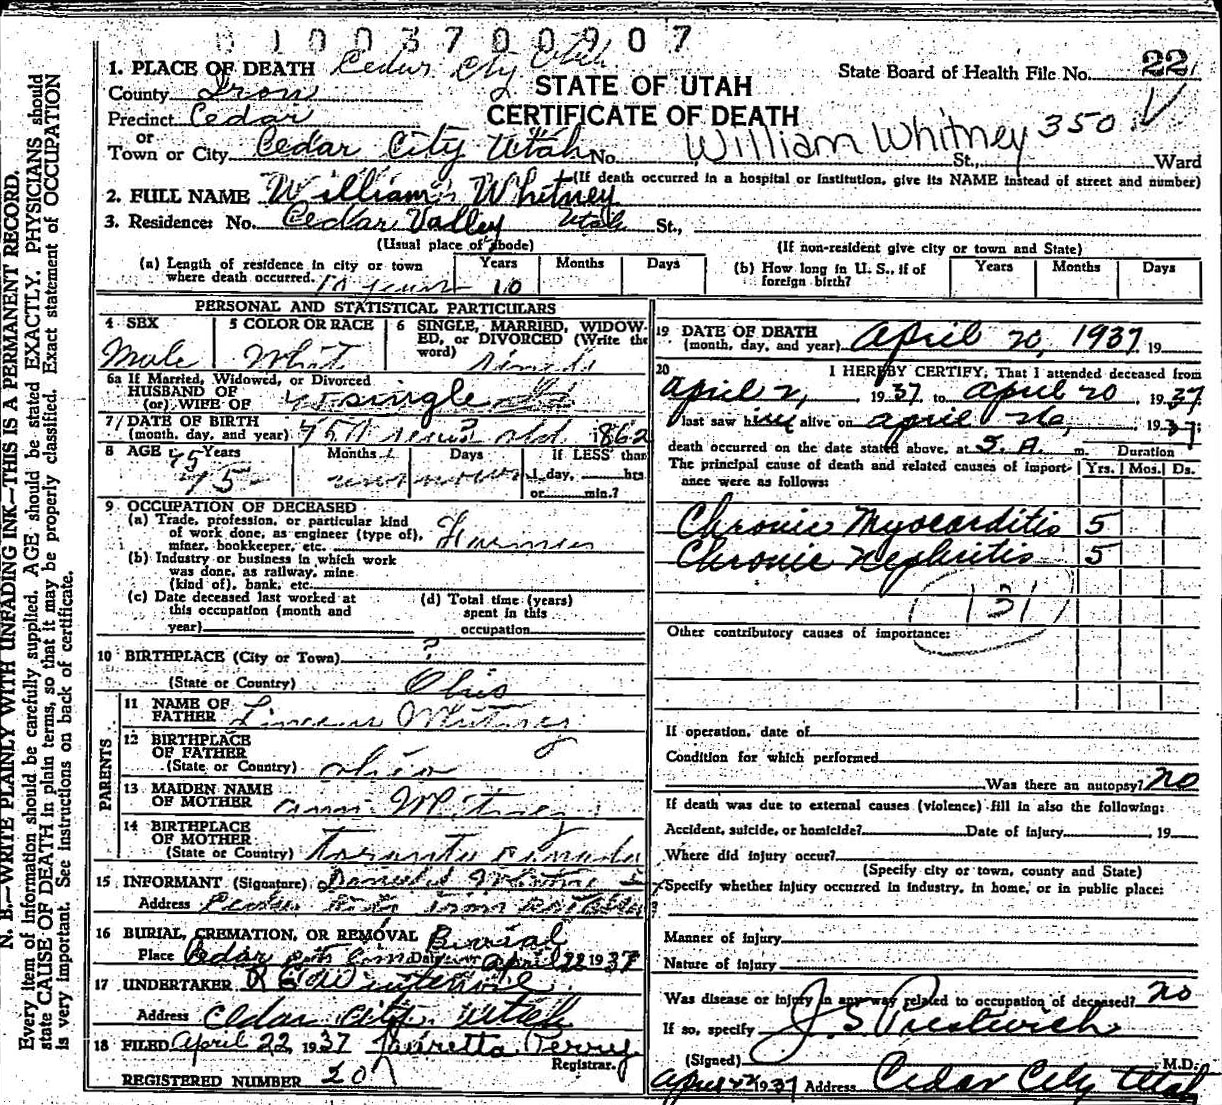 0 1 0 0 3 7 0 0 9 0 7
1. PLACE OF DEATH Cedar City Utah
STATE OF UTAH
CERTIFICATE OF DEATH
State Board of Health File No. 22
County Iron
Precinct Cedar
or
Town or City Cedar City Utah No. William Whitney 350 St., Ward
(If death occurred in a hospital or institution, give its NAME instead of street and number)
2. FULL NAME William Whitney
3. Residence: No. Cedar Valley Utah St.,
(Usual place of abode)
(If non-resident give city or town and State)
(a) Length of residence in city or town where death occurred. 10 years
Years Months Days
10
(b) How long in U. S., if of foreign birth?
Years Months Days
PERSONAL AND STATISTICAL PARTICULARS
4 SEX
Male
5 COLOR OR RACE
White
6 SINGLE, MARRIED, WIDOWED, or DIVORCED (Write the word)
6a If Married, Widowed, or Divorced
HUSBAND OF
(or) WIFE OF single
7 DATE OF BIRTH
(month, day, and year) 1862
8 AGE Years Months Days If LESS than
75 unknown 1 day, hrs
or min.?
9 OCCUPATION OF DECEASED
(a) Trade, profession, or particular kind
of work done, as engineer (type of),
miner, bookkeeper, etc. Farmer
(b) Industry or business in which work
was done, as railway, mine
(kind of), bank, etc.
(c) Date deceased last worked at
this occupation (month and
year)
(d) Total time (years)
spent in this
occupation
10 BIRTHPLACE (City or Town) ?
(State or Country) Ohio
PARENTS
11 NAME OF
FATHER Whitney
12 BIRTHPLACE
OF FATHER
(State or Country) Ohio
13 MAIDEN NAME
OF MOTHER
14 BIRTHPLACE
OF MOTHER
(State or Country) Toronto Canada
15 INFORMANT (Signature)
Address
16 BURIAL, CREMATION, OR REMOVAL Burial
Place Cedar City Cem Date April 22 1937
17 UNDERTAKER
Address Cedar City Utah
18 FILED April 22, 1937 Lauretta Perry
Registrar.
REGISTERED NUMBER 20
19 DATE OF DEATH
(month, day, and year) April 20, 1937 19
20 I HEREBY CERTIFY, That I attended deceased from
April 2, 1937 to April 20, 1937
I last saw him alive on April 1937;
death occurred on the date stated above, at 5. A. m. Duration
The principal cause of death and related causes of importance were as follows: Yrs. Mos. Ds.
Chronic Myocarditis 5
Chronic Nephritis 5
131
Other contributory causes of importance:
If operation, date of
Condition for which performed
Was there an autopsy? no
If death was due to external causes (violence) fill in also the following:
Accident, suicide, or homicide? Date of injury 19
Where did injury occur?
(Specify city or town, county and State)
Specify whether injury occurred in industry, in home, or in public place:
Manner of injury
Nature of injury
Was disease or injury in any way related to occupation of deceased? no
If so, specify
(Signed) J. S. Prestwich M.D.
April 22 1937 Address Cedar City Utah
N. B.—WRITE PLAINLY WITH UNFADING INK—THIS IS A PERMANENT RECORD.
Every item of information should be carefully supplied. AGE should be stated EXACTLY. PHYSICIANS should
state CAUSE OF DEATH in plain terms, so that it may be properly classified. Exact statement of OCCUPATION
is very important. See instructions on back of certificate.